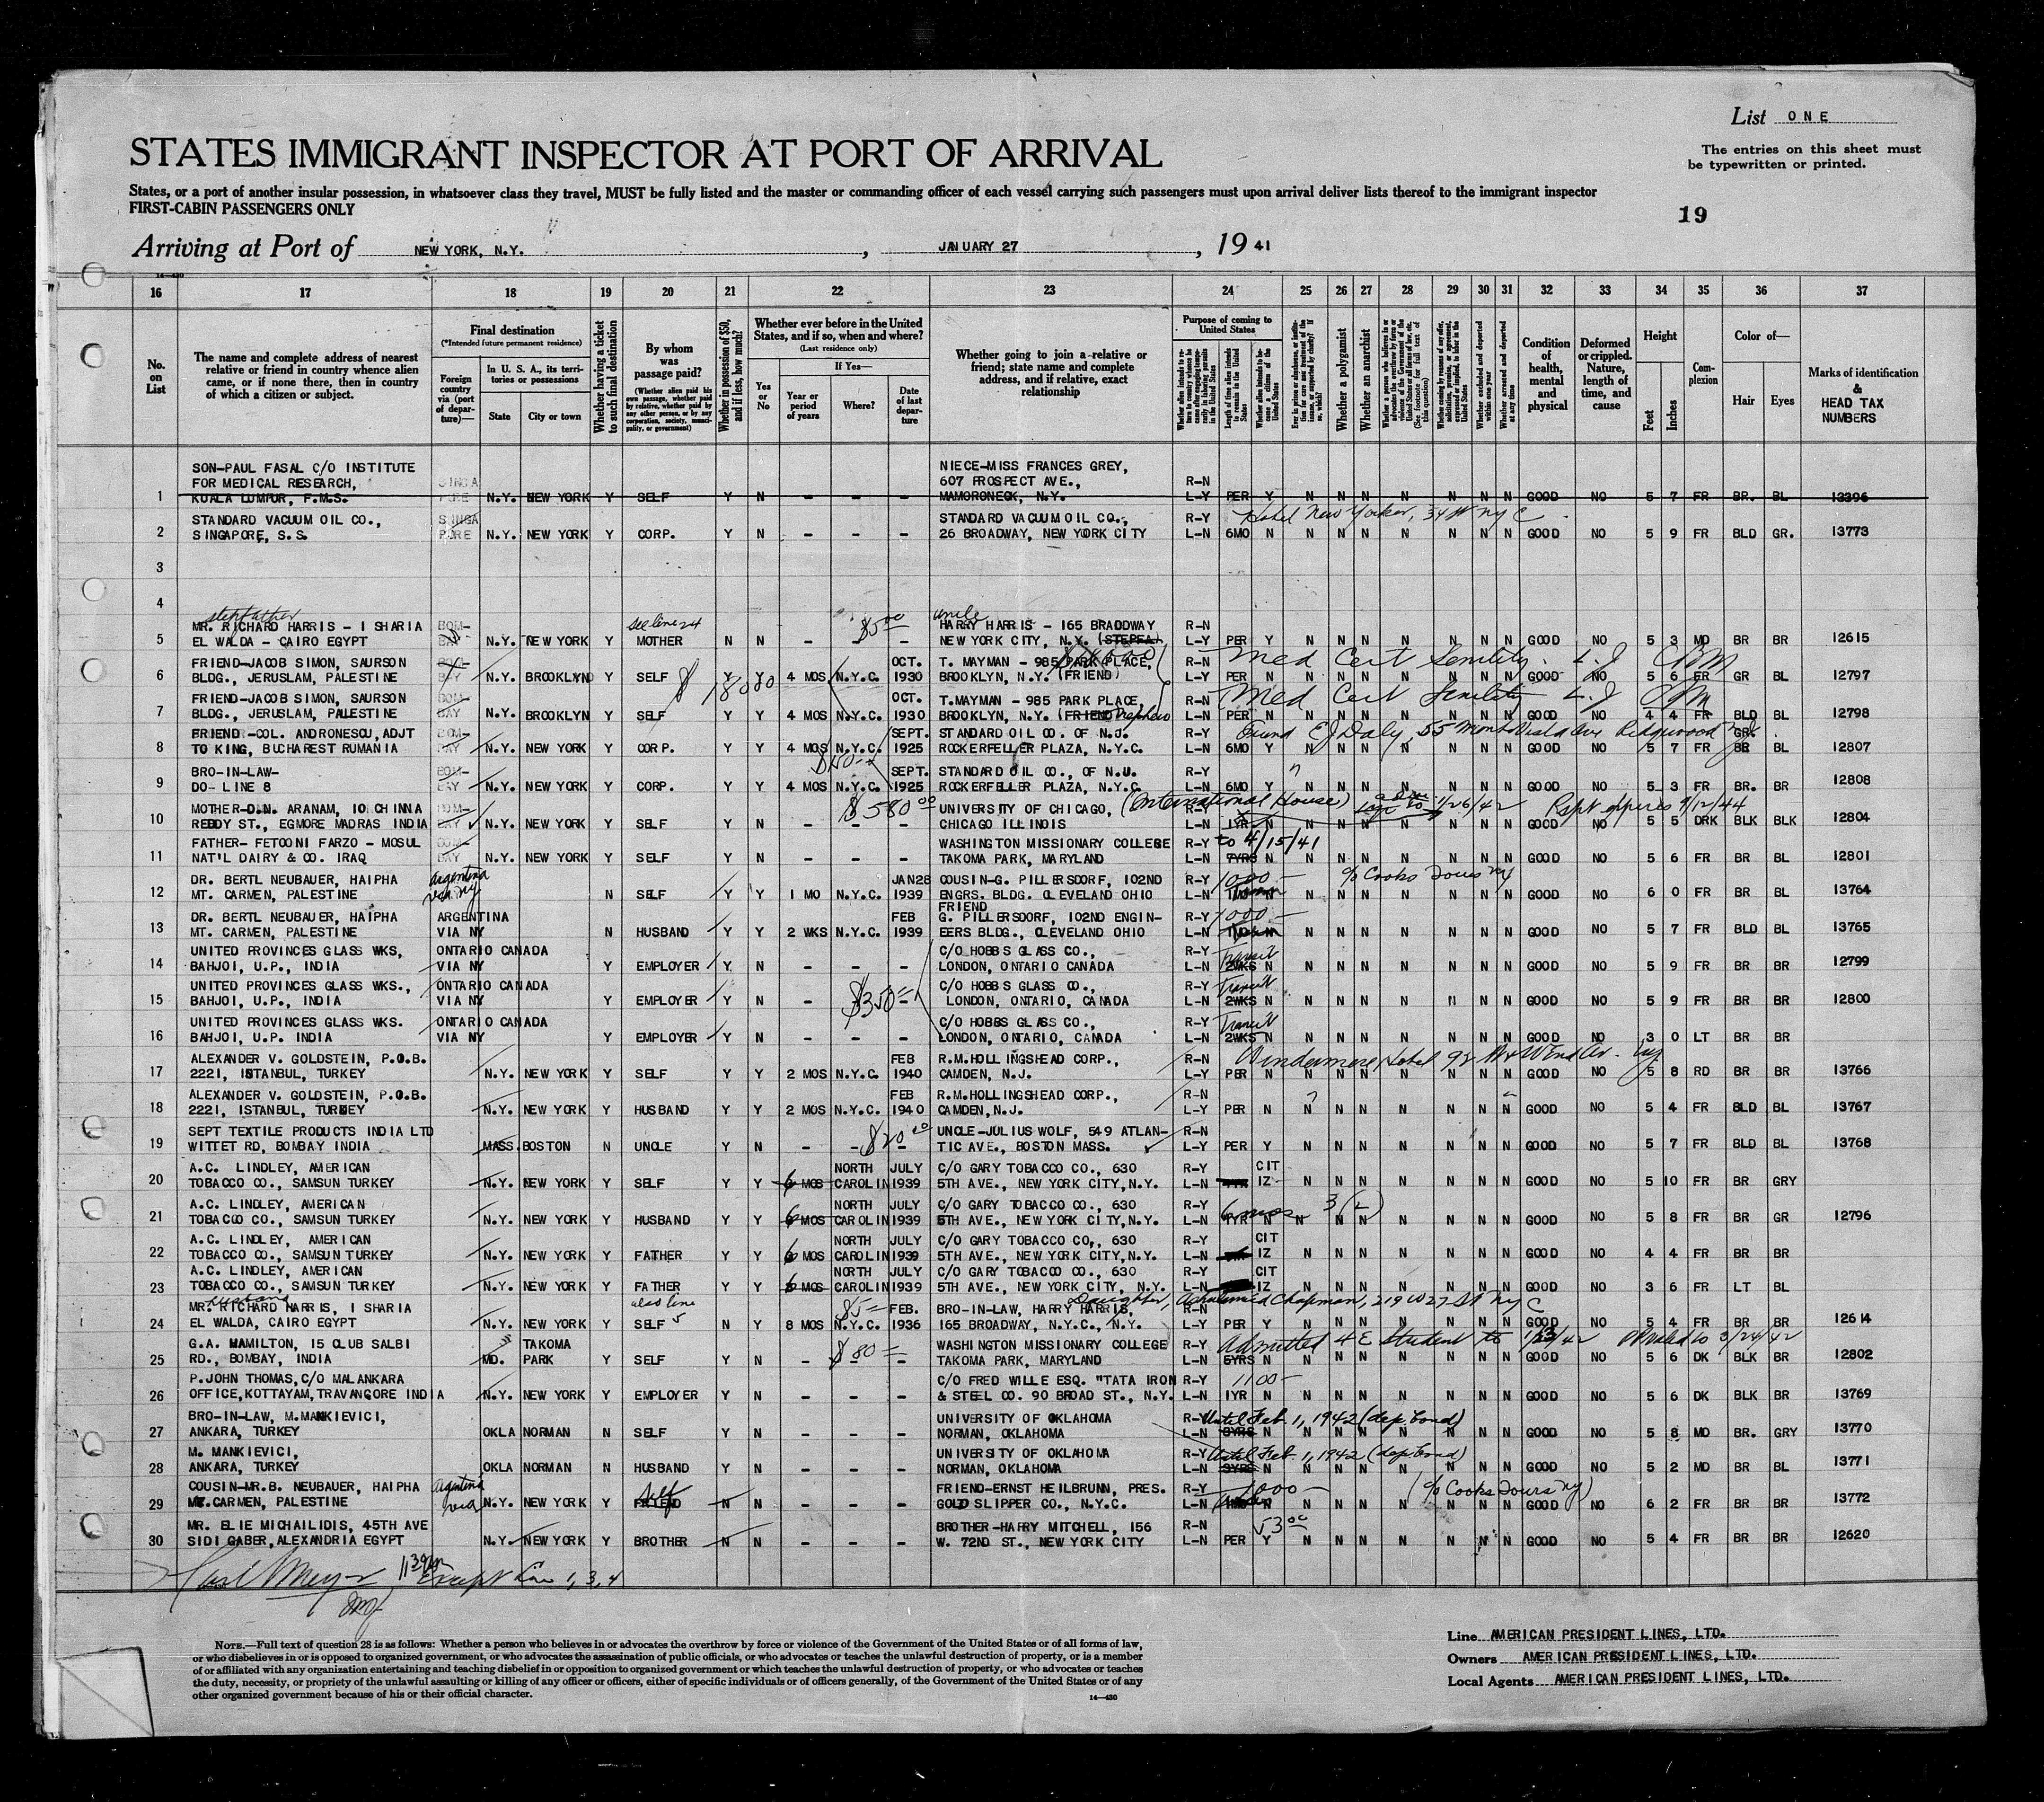 List ONE
The entries on this sheet must
be typewritten or printed.
STATES IMMIGRANT INSPECTOR AT PORT OF ARRIVAL
States, or a port of another insular possession, in whatsoever class they travel, MUST be fully listed and the master or commanding officer of each vessel carrying such passengers must upon arrival deliver lists thereof to the immigrant inspector
FIRST-CABIN PASSENGERS ONLY
19
Arriving at Port of NEW YORK, N.Y. , JANUARY 27 , 19 41
14-430
16 17 18 19 20 21 22 23 24 25 26 27 28 29 30 31 32 33 34 35 36 37
No. on List
The name and complete address of nearest relative or friend in country whence alien came, or if none there, then in country of which a citizen or subject.
Final destination
(*Intended future permanent residence)
Foreign country via (port of departure)—
In U. S. A., its territories or possessions
State
City or town
Whether having a ticket to such final destination
By whom was passage paid?
(Whether alien paid his own passage, whether paid by relative, whether paid by any other person, or by any corporation, society, municipality, or government)
Whether in possession of $50, and if less, how much?
Whether ever before in the United States, and if so, when and where?
(Last residence only)
Yes or No
If Yes—
Year or period of years
Where?
Date of last departure
Whether going to join a relative or friend; state name and complete address, and if relative, exact relationship
Purpose of coming to United States
Length of time alien intends to remain in the United States
Whether alien intends to become a citizen of the United States
Whether a polygamist
Whether an anarchist
Whether excluded and deported within one year
Whether arrested and deported at any time
Condition of health, mental and physical
Deformed or crippled. Nature, length of time, and cause
Height
Feet
Inches
Complexion
Color of—
Hair
Eyes
Marks of identification
&
HEAD TAX
NUMBERS
SON-PAUL FASAL C/O INSTITUTE NIECE-MISS FRANCES GREY,
FOR MEDICAL RESEARCH, SINGA 607 PROSPECT AVE., R-N
1 KUALA LUMPUR, F.M.S. PORE N.Y. NEW YORK Y SELF Y N - - - MAMORONECK, N.Y. L-Y PER Y N N N N N N N GOOD NO 5 7 FR BR. BL 12396
STANDARD VACUUM OIL CO., SINGA STANDARD VACUUM OIL CO., R-Y Hotel New Yorker, 34 St NYC
2 SINGAPORE, S.S. PORE N.Y. NEW YORK Y CORP. Y N - - - 26 BROADWAY, NEW YORK CITY L-N 6MO N N N N N N N N GOOD NO 5 9 FR BLD GR. 13773
3
4
stepfather see line 24 $5.00 uncle
MR. RICHARD HARRIS - I SHARIA BOM- HARRY HARRIS - 165 BRAODWAY R-N
5 EL WALDA - CAIRO EGYPT BAY N.Y. NEW YORK Y MOTHER N N - - - NEW YORK CITY, N.Y. (STEPFA) L-Y PER Y N N N N N N N GOOD NO 5 3 MD BR BR 12615
FRIEND-JACOB SIMON, SAURSON BOM- OCT. T. MAYMAN - 985 PARK PLACE, R-N Med Cert Senility.
6 BLDG., JERUSLAM, PALESTINE BAY N.Y. BROOKLYN Y SELF Y Y 4 MOS N.Y.C. 1930 BROOKLYN, N.Y. (FRIEND) L-Y PER N N N N N N N N GOOD NO 5 6 FR GR BL 12797
FRIEND-JACOB SIMON, SAURSON BOM- OCT. T.MAYMAN - 985 PARK PLACE, R-N Med Cert Senility
7 BLDG., JERUSLAM, PALLESTINE BAY N.Y. BROOKLYN Y SELF Y Y 4 MOS N.Y.C. 1930 BROOKLYN, N.Y. (FRIEND nephew L-N PER N N N N N N N N GOOD NO 4 4 FR BLD BL 12798
FRIEND-COL. ANDRONESCU, ADJT BOM- SEPT. STANDARD OIL CO. OF N.J. R-Y E J Daly, 55 Ave Ridgewood NJ. GR.
8 TO KING, BUCHAREST RUMANIA BAY N.Y. NEW YORK Y CORP. Y Y 4 MOS N.Y.C. 1925 ROCKERFELLER PLAZA, N.Y.C. L-N 6MO Y N N N N N N N GOOD NO 5 7 FR BR BL 12807
BRO-IN-LAW- BOM- SEPT. STANDARD OIL CO., OF N.U. R-Y
9 DO- LINE 8 BAY N.Y. NEW YORK Y CORP. Y Y 4 MOS N.Y.C. 1925 ROCKERFELLER PLAZA, N.Y.C. L-N 6MO Y N N N N N N N GOOD NO 5 3 FR BR. BR 12808
MOTHER-D.N. ARANAM, 10 CHINNA BOM- $580.00 UNIVERSITY OF CHICAGO, (International House) R-Y 1/26/42 Rept 9/12/44
10 REDDY ST., EGMORE MADRAS INDIA BAY N.Y. NEW YORK Y SELF Y N - - - CHICAGO ILLINOIS L-N 1YR N N N N N N N N GOOD NO 5 5 DRK BLK BLK 12804
FATHER- FETOONI FARZO - MOSUL BOM- WASHINGTON MISSIONARY COLLEGE R-Y to 4/15/41
11 NAT'L DAIRY & CO. IRAQ BAY N.Y. NEW YORK Y SELF Y N - - - TAKOMA PARK, MARYLAND L-N 7YRS N N N N N N N N GOOD NO 5 6 FR BR BL 12801
DR. BERTL NEUBAUER, HAIPHA Argentina JAN28 COUSIN-G. PILLERSDORF, 102ND R-Y 1000- c/o Cooks Tours NY
12 MT. CARMEN, PALESTINE via NY N SELF Y Y 1 MO N.Y.C. 1939 ENGRS. BLDG. CLEVELAND OHIO L-N N N N N N N N N GOOD NO 6 0 FR BR BL 13764
FRIEND
DR. BERTL NEUBAUER, HAIPHA ARGENTINA FEB G. PILLERSDORF, 102ND ENGIN- R-Y 1000-
13 MT. CARMEN, PALESTINE VIA NY N HUSBAND Y Y 2 WKS N.Y.C. 1939 EERS BLDG., CLEVELAND OHIO L-N N N N N N N N N GOOD NO 5 7 FR BLD BL 13765
UNITED PROVINCES GLASS WKS, ONTARIO CANADA C/O HOBBS GLASS CO., R-Y Transit
14 BAHJOI, U.P., INDIA VIA NY Y EMPLOYER Y N - - - LONDON, ONTARIO CANADA L-N 2WKS N N N N N N N N GOOD NO 5 9 FR BR BR 12799
UNITED PROVINCES GLASS WKS., ONTARIO CANADA C/O HOBBS GLASS CO., R-Y Transit
15 BAHJOI, U.P., INDIA VIA NY Y EMPLOYER Y N - $350- - LONDON, ONTARIO, CANADA L-N 2WKS N N N N N N N N GOOD NO 5 9 FR BR BR 12800
UNITED PROVINCES GLASS WKS. ONTARIO CANADA C/O HOBBS GLASS CO., R-Y Transit
16 BAHJOI, U.P. INDIA VIA NY Y EMPLOYER Y N - - - LONDON, ONTARIO, CANADA L-N 2WKS N N N N N N N N GOOD NO 3 0 LT BR BR
ALEXANDER V. GOLDSTEIN, P.O.B. FEB R.M.HOLLINGSHEAD CORP., R-N Windermere Hotel 92 W End Av.
17 2221, ISTANBUL, TURKEY N.Y. NEW YORK Y SELF Y Y 2 MOS N.Y.C. 1940 CAMDEN, N.J. L-Y PER N N N N N N N N GOOD NO 5 8 RD BR BR 13766
ALEXANDER V. GOLDSTEIN, P.O.B. FEB R.M.HOLLINGSHEAD CORP., R-N
18 2221, ISTANBUL, TURKEY N.Y. NEW YORK Y HUSBAND Y Y 2 MOS N.Y.C. 1940 CAMDEN, N.J. L-Y PER N N N N N N N N GOOD NO 5 4 FR BLD BL 13767
SEPT TEXTILE PRODUCTS INDIA LTD $20.00 UNCLE-JULIUS WOLF, 549 ATLAN- R-N
19 WITTET RD, BOMBAY INDIA MASS. BOSTON N UNCLE Y N - - - TIC AVE., BOSTON MASS. L-Y PER Y N N N N N N N GOOD NO 5 7 FR BLD BL 13768
A.C. LINDLEY, AMERICAN NORTH JULY C/O GARY TOBACCO CO., 630 R-Y CIT
20 TOBACCO CO., SAMSUN TURKEY N.Y. NEW YORK Y SELF Y Y 6 MOS CAROLIN 1939 5TH AVE., NEW YORK CITY, N.Y. L-N IZ N N N N N N N GOOD NO 5 10 FR BR GRY
A.C. LINDLEY, AMERICAN NORTH JULY C/O GARY TOBACCO CO., 630 R-Y 3(2)
21 TOBACCO CO., SAMSUN TURKEY N.Y. NEW YORK Y HUSBAND Y Y 6 MOS CAROLIN 1939 5TH AVE., NEW YORK CITY,N.Y. L-N 1YR 6 mos N N N N N N N N GOOD NO 5 8 FR BR GR 12796
A.C. LINDLEY, AMERICAN NORTH JULY C/O GARY TOBACCO CO,, 630 R-Y CIT
22 TOBACCO CO., SAMSUN TURKEY N.Y. NEW YORK Y FATHER Y Y 6 MOS CAROLIN 1939 5TH AVE., NEW YORK CITY,N.Y. L-N IZ N N N N N N N GOOD NO 4 4 FR BR BR
A.C. LINDLEY, AMERICAN NORTH JULY C/O GARY TOBACCO CO., 630 R-Y CIT
23 TOBACCO CO., SAMSUN TURKEY N.Y. NEW YORK Y FATHER Y Y 6 MOS CAROLIN 1939 5TH AVE., NEW YORK CITY, N.Y. L-N IZ N N N N N N N GOOD NO 3 6 FR LT BL
husband also line 5 $5- Daughter, Chapman, 219 W 27 St NYC
MR. RICHARD HARRIS, I SHARIA FEB. BRO-IN-LAW, HARRY HARRIS, R-N
24 EL WALDA, CAIRO EGYPT N.Y. NEW YORK Y SELF N Y 8 MOS N.Y.C. 1936 165 BROADWAY, N.Y.C., N.Y. L-Y PER Y N N N N N N N GOOD NO 5 4 FR BR BR 12614
G.A. HAMILTON, 15 CLUB SALBI TAKOMA WASHINGTON MISSIONARY COLLEGE R-Y Admitted 4E Student to 1/23/42 to 3/24/42
25 RD., BOMBAY, INDIA MD. PARK Y SELF Y N - $80- - TAKOMA PARK, MARYLAND L-N 5YRS N N N N N N N N GOOD NO 5 6 DK BLK BR 12802
P.JOHN THOMAS, C/O MALANKARA C/O FRED WILLE ESQ. "TATA IRON R-Y 1100-
26 OFFICE,KOTTAYAM,TRAVANCORE INDIA N.Y. NEW YORK Y EMPLOYER Y N - - - & STEEL CO. 90 BROAD ST., N.Y. L-N 1YR N N N N N N N N GOOD NO 5 6 DK BLK BR 13769
BRO-IN-LAW, M.MANKIEVICI, UNIVERSITY OF OKLAHOMA R-Y Until Feb. 1, 1942 (dep. bond)
27 ANKARA, TURKEY OKLA NORMAN N SELF Y N - - - NORMAN, OKLAHOMA L-N 3YRS N N N N N N N N GOOD NO 5 8 MD BR. GRY 13770
M. MANKIEVICI, UNIVERSITY OF OKLAHOMA R-Y Until Feb. 1, 1942 (dep. bond)
28 ANKARA, TURKEY OKLA NORMAN N HUSBAND Y N - - - NORMAN, OKLAHOMA L-N 3YRS N N N N N N N N GOOD NO 5 2 MD BR BL 13771
COUSIN-MR.B. NEUBAUER, HAIPHA Argentina Self FRIEND-ERNST HEILBRUNN, PRES. R-Y 1000- (c/o Cooks Tours NY)
29 MT.CARMEN, PALESTINE via N.Y. NEW YORK Y FRIEND N N - - - GOLD SLIPPER CO., N.Y.C. L-N N N N N N N N N GOOD NO 6 2 FR BR BR 13772
MR. ELIE MICHAILIDIS, 45TH AVE BROTHER-HARRY MITCHELL, 156 R-N 53.00
30 SIDI GABER, ALEXANDRIA EGYPT N.Y. NEW YORK Y BROTHER N N - - - W. 72ND ST., NEW YORK CITY L-N PER Y N N N N N N N GOOD NO 5 4 FR BR BR 12620
Except Line 1, 3, 4
NOTE.—Full text of question 28 is as follows: Whether a person who believes in or advocates the overthrow by force or violence of the Government of the United States or of all forms of law,
or who disbelieves in or is opposed to organized government, or who advocates the assassination of public officials, or who advocates or teaches the unlawful destruction of property, or is a member
of or affiliated with any organization entertaining and teaching disbelief in or opposition to organized government or which teaches the unlawful destruction of property, or who advocates or teaches
the duty, necessity, or propriety of the unlawful assaulting or killing of any officer or officers, either of specific individuals or of officers generally, of the Government of the United States or of any
other organized government because of his or their official character.
14-430
Line AMERICAN PRESIDENT LINES, LTD.
Owners AMERICAN PRESIDENT LINES, LTD.
Local Agents AMERICAN PRESIDENT LINES, LTD.